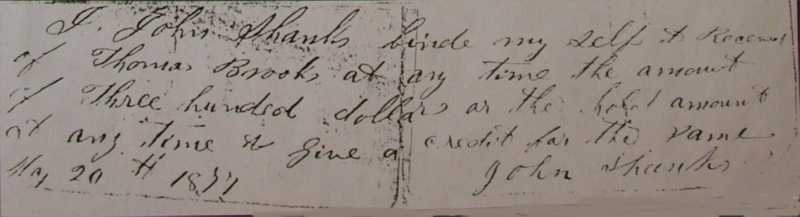 I. John Shanks binde my self to Receive
of Thomas Brooks at any time the amount
of Three hundred dollars or the hole amount
at any time & give a credit for the same
May 20 th 1877 John Shanks